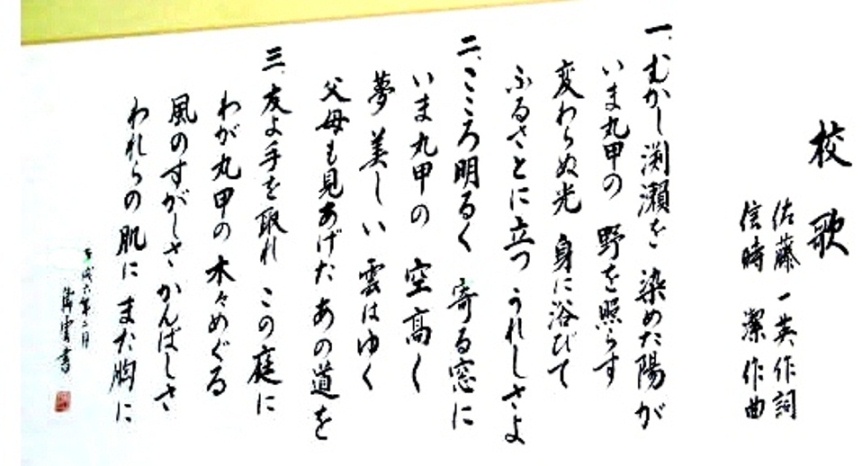 校歌
佐藤一英作詞
信時 潔作曲
一、むかし渕瀬を 染めた陽が
いま丸甲の 野を照らす
変わらぬ光 身に浴びて
ふるさとに立つ うれしさよ
二、こころ明るく 寄る窓に
いま丸甲の 空高く
夢美しい 雲はゆく
父母も見あげた あの道を
三、友よ手を取れ この庭に
わが丸甲の 木々めぐる
風のすがしさ かんばしさ
われらの肌に また胸に
平成六年二月
書